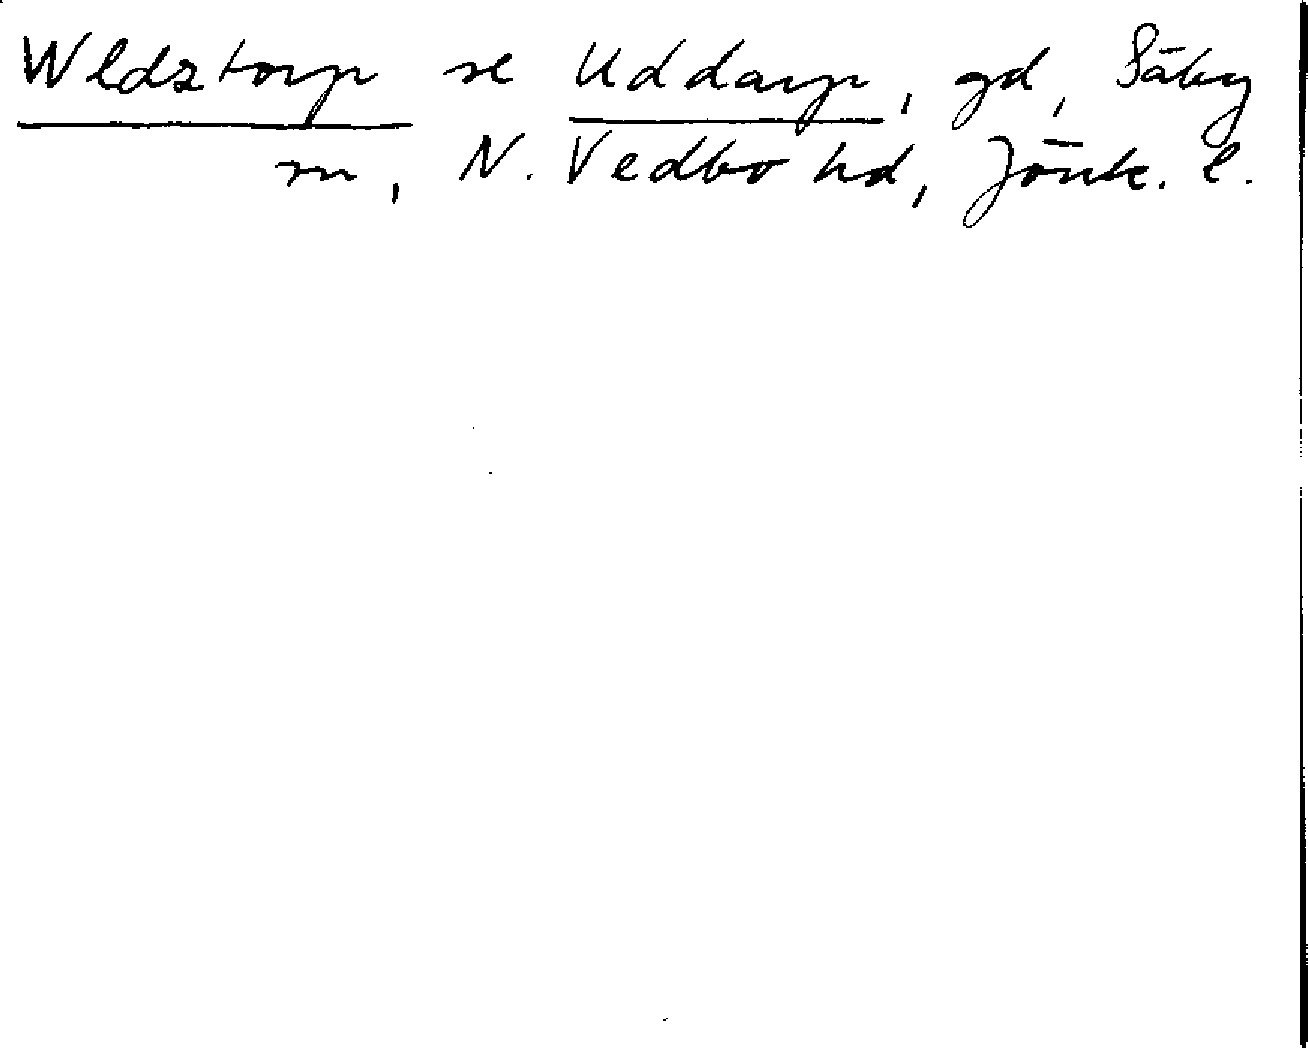 Wldztorp se Uddarp, gd, Säby
sn, N. Vedbo hd, Jönk. l.